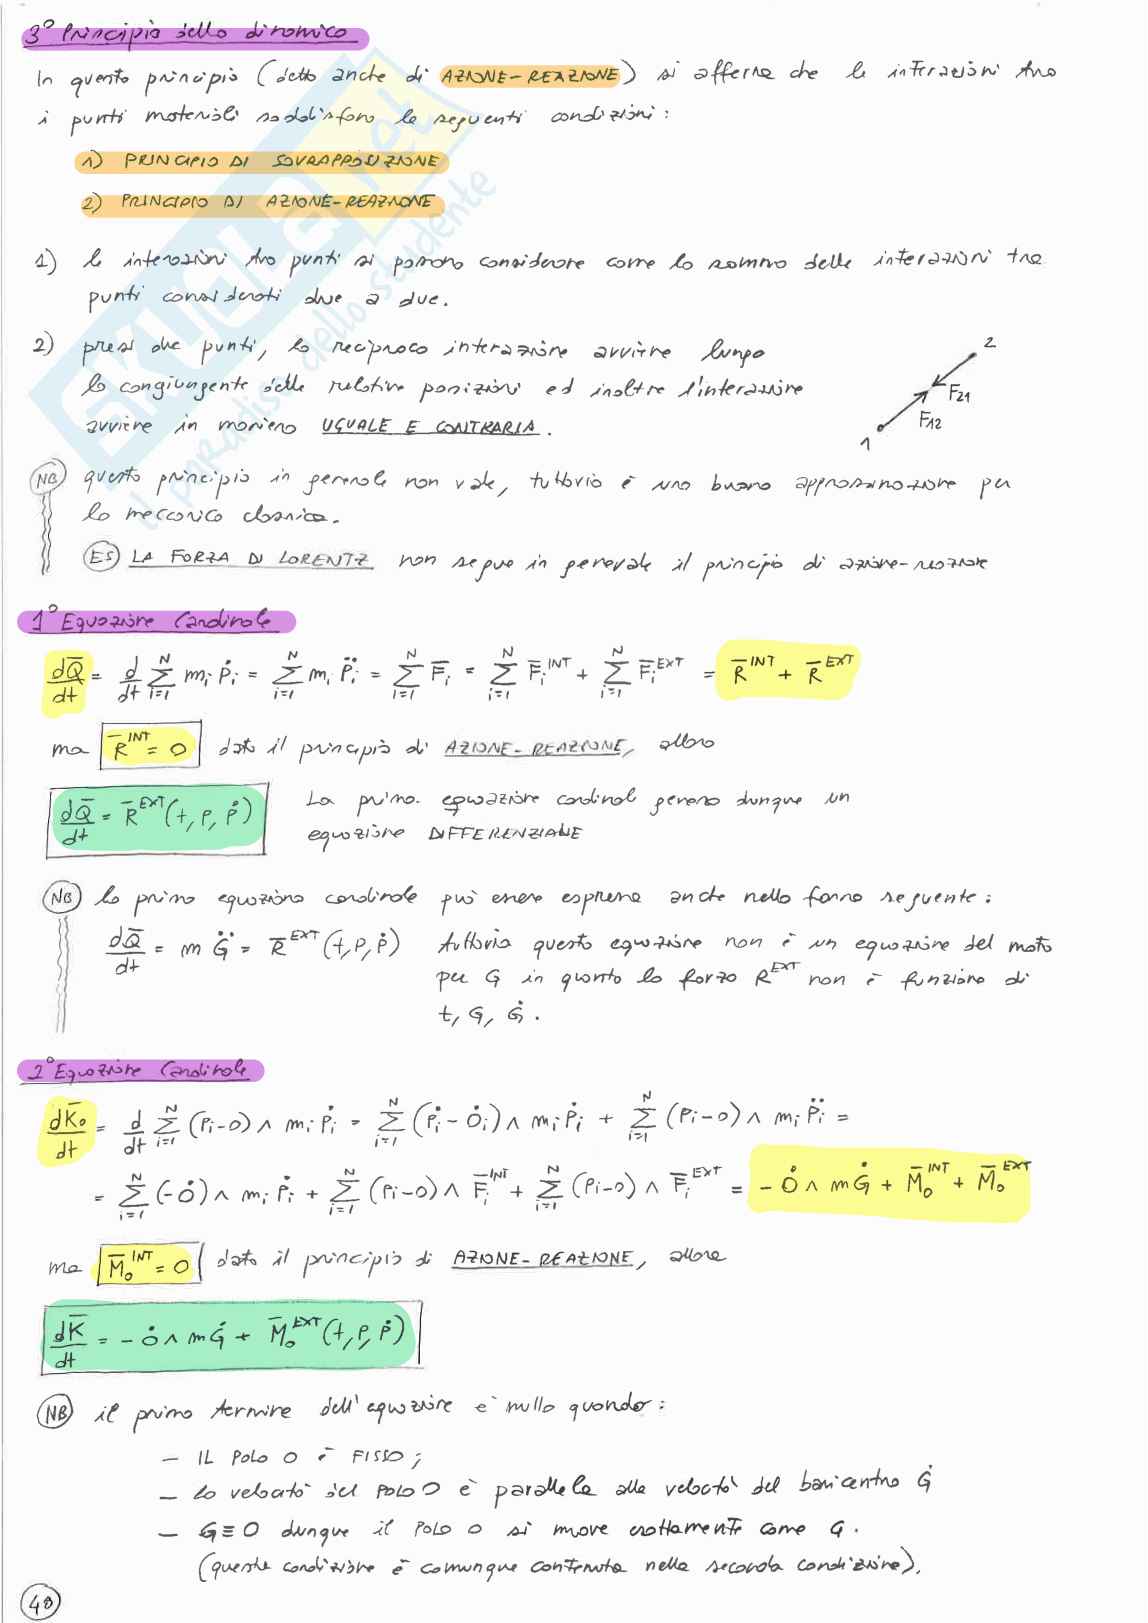 3° Principio della dinamica
In questo principio (detto anche di AZIONE-REAZIONE) si afferma che le interazioni tra
i punti materiali soddisfano le seguenti condizioni:
1) PRINCIPIO DI SOVRAPPOSIZIONE
2) PRINCIPIO DI AZIONE-REAZIONE
1) le interazioni tra punti si possono considerare come la somma delle interazioni tra
punti considerati due a due.
2) presi due punti, la reciproca interazione avviene lungo
la congiungente delle relative posizioni ed inoltre l'interazione
avviene in maniera UGUALE E CONTRARIA.
2
F21
F12
1
NB questo principio in generale non vale, tuttavia è una buona approssimazione per
la meccanica classica.
ES LA FORZA DI LORENTZ non segue in generale il principio di azione-reazione
1° Equazione Cardinale
dQ̄/dt = d/dt Σ_{i=1}^{N} m_i Ṗ_i = Σ_{i=1}^{N} m_i P̈_i = Σ_{i=1}^{N} F̄_i = Σ_{i=1}^{N} F̄_i^{INT} + Σ_{i=1}^{N} F̄_i^{EXT} = R̄^{INT} + R̄^{EXT}
ma R̄^{INT} = 0 dato il principio di AZIONE-REAZIONE, allora
dQ̄/dt = R̄^{EXT}(t, P, Ṗ) La prima equazione cardinal genera dunque un
equazione DIFFERENZIALE
NB la prima equazione cardinale può essere espressa anche nella forma seguente:
dQ̄/dt = m G̈ = R̄^{EXT}(t, P, Ṗ) Tuttavia questa equazione non è un equazione del moto
per G in quanto la forza R^{EXT} non è funzione di
t, G, Ġ.
2° Equazione Cardinale
dK̄_o/dt = d/dt Σ_{i=1}^{N} (P_i-O) ∧ m_i Ṗ_i = Σ_{i=1}^{N} (Ṗ_i - Ȯ_i) ∧ m_i Ṗ_i + Σ_{i=1}^{N} (P_i-O) ∧ m_i P̈_i =
= Σ_{i=1}^{N} (-Ȯ) ∧ m_i Ṗ_i + Σ_{i=1}^{N} (P_i-O) ∧ F̄_i^{INT} + Σ_{i=1}^{N} (P_i-O) ∧ F̄_i^{EXT} = - Ȯ ∧ mĠ + M̄_o^{INT} + M̄_o^{EXT}
ma M̄_o^{INT} = 0 dato il principio di AZIONE-REAZIONE, allora
dK̄/dt = - Ȯ ∧ mĠ + M̄_o^{EXT}(t, P, Ṗ)
NB il primo termine dell'equazione è nullo quando:
- IL POLO O È FISSO;
- la velocità del POLO O è parallela alla velocità del baricentro Ġ
- G≡O dunque il POLO O si muove esattamente come G.
(questa condizione è comunque contenuta nella seconda condizione).
48
SKUOLA.net
il paradiso dello studente